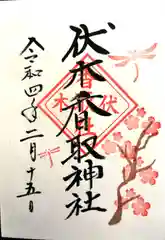 伏木香取神社
令和四年二月十五日